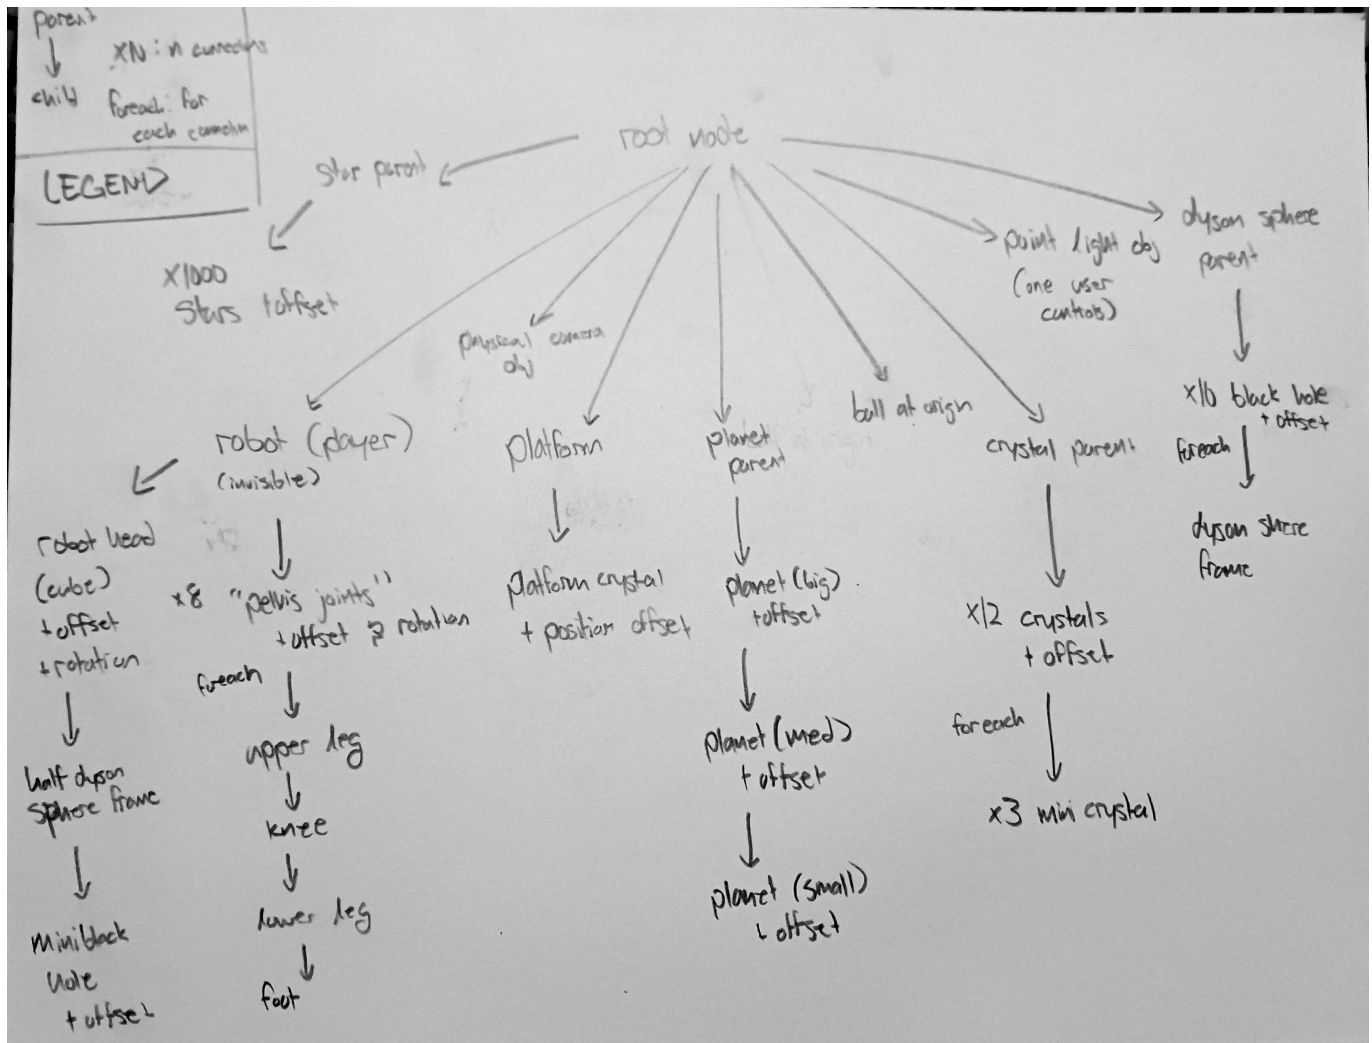 parent
child
XN: n connections
foreach: for
each connection
LEGEND
root node
star parent
x1000
stars + offset
physical camera
obj
point light obj
(one user
controls)
dyson sphere
parent
x10 black hole
+ offset
foreach
dyson shere
frame
robot (player)
(invisible)
robot head
(cube)
+ offset
+ rotation
half dyson
sphere frame
mini black
hole
+ offset
x8 "pelvis joints"
+ offset & rotation
foreach
upper leg
knee
lower leg
foot
platform
platform crystal
+ position offset
planet
parent
planet (big)
+ offset
planet (med)
+ offset
planet (small)
+ offset
ball at origin
crystal parent
x12 crystals
+ offset
foreach
x3 mini crystal